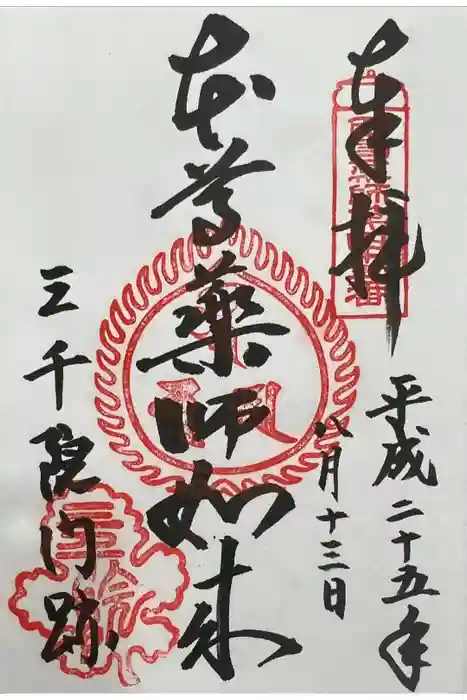 奉拝
平成二十五年
八月十三日
本尊薬師如来
三千院門跡